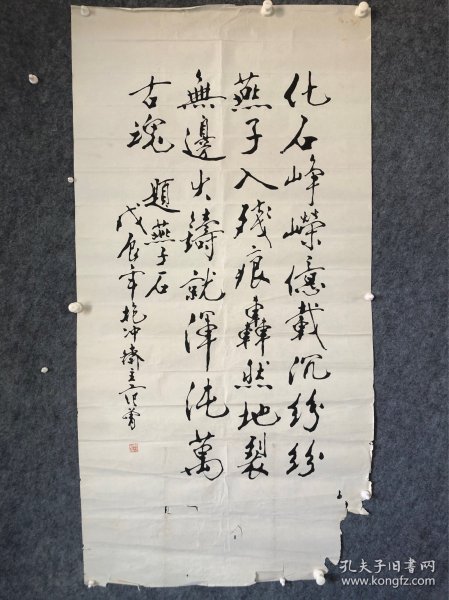 化石峥嵘億載沉纷纷
燕子入残痕轟然地裂
無邊火鑄就渾沌萬
古魂
題燕子石
戊辰年抱冲斋主范曾
孔夫子旧书网
www.kongfz.com